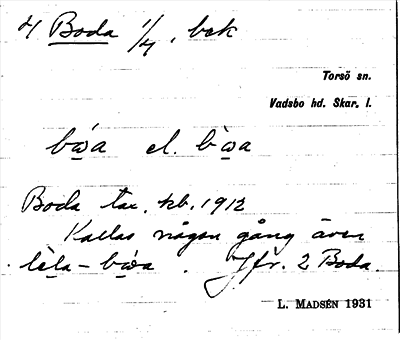 4 Boda 1/4, bok
Torsö sn.
Vadsbo hd. Skar. l.
bẃa el. b̀wa
Boda tax. kb. 1912
Kallas någon gång även
lìla-bẃa. Jfr. 2 Boda.
L. MADSÉN 1931